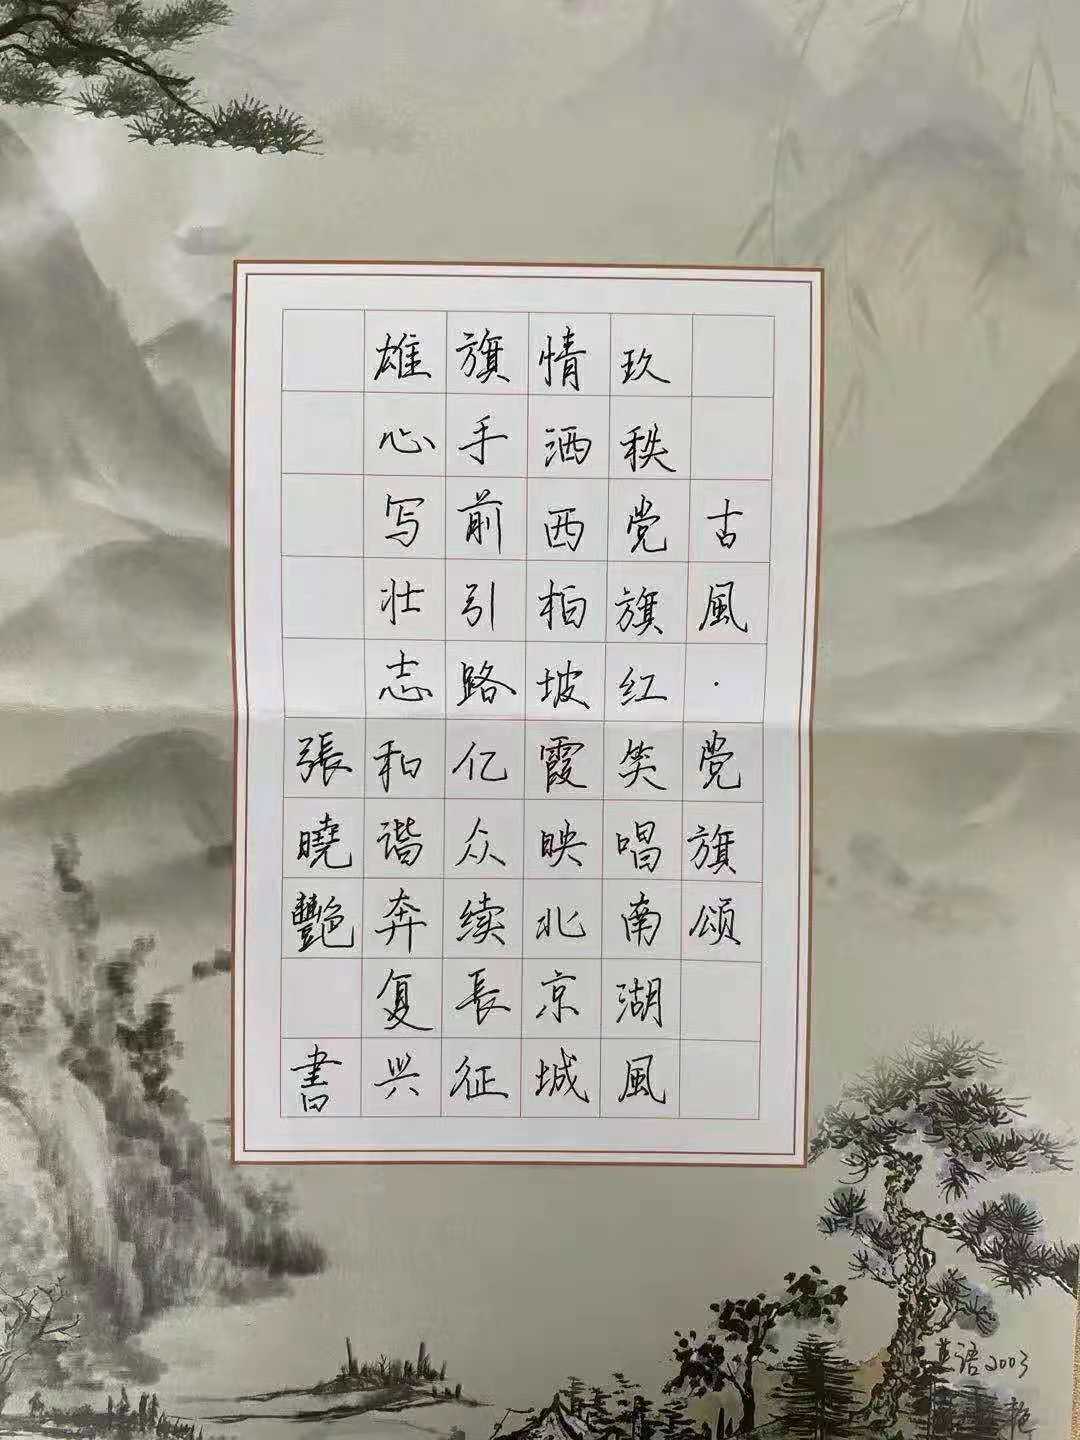 古風·党旗颂
玖秩党旗红笑唱南湖風
情洒西柏坡霞映北京城
旗手前引路亿众续長征
雄心写壮志和谐奔复兴
張曉艷書
英语2003
艳